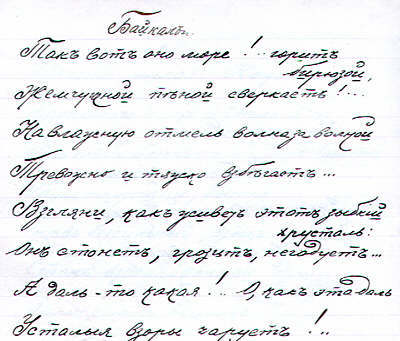 Байкалъ.
Такъ вотъ оно море!.. горитъ
бирюзой,
Жемчужной пѣной сверкаетъ!...
На влажную отмель волна за волной
Тревожно и тяжко взбѣгаетъ...
Взгляни, какъ живетъ этотъ зыбкій
хрусталь:
Онъ стонетъ, грозитъ, негодуетъ...
А даль-то какая!.. О, какъ эта даль
Усталые взоры чаруетъ!..